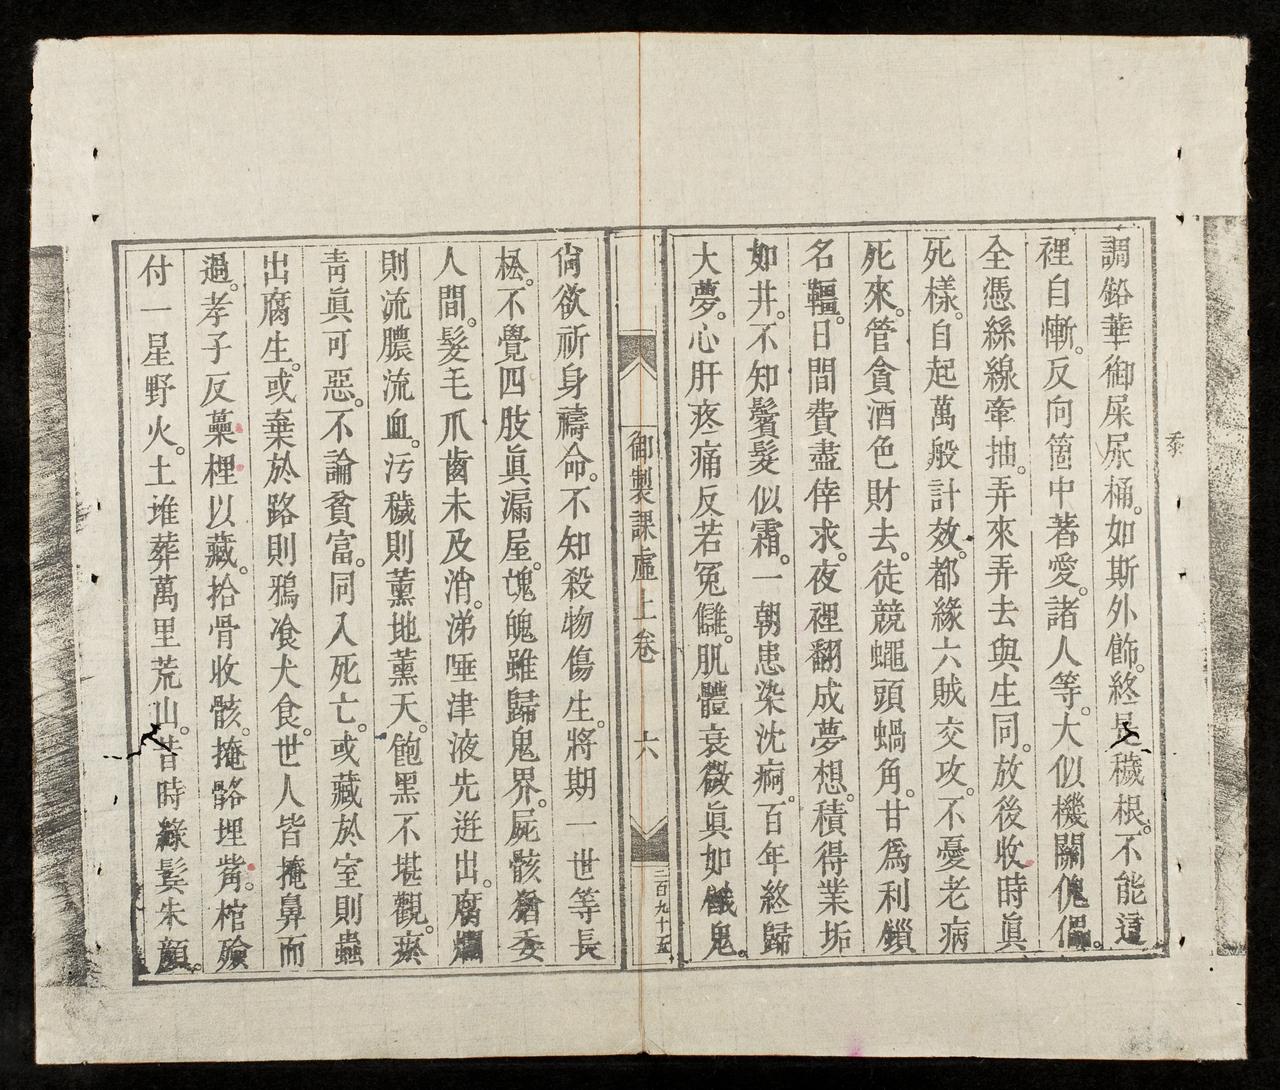 調鉛華御屎尿桶。如斯外飾。終是穢根。不能這
裡自慚。反向箇中著愛。諸人等。大似機關傀儡。
全憑絲線牽抽。弄來弄去與生同。放後收時眞
死樣。自起萬般計效。都緣六賊交攻。不憂老病
死來。管貪酒色財去。徒競蠅頭蝸角。甘爲利鎖
名韁。日間費盡倖求。夜裡翻成夢想。積得業垢
如井。不知鬢髮似霜。一朝患染沈痾。百年終歸
大夢。心肝疼痛反若冤讎。肌體衰微眞如餓鬼。
御製課虛上卷 六 二百九十五
尙欲祈身禱命。不知殺物傷生。將期一世等長
松。不覺四肢眞漏屋。魂魄雖歸鬼界。屍骸猶委
人間。髮毛爪齒未及消。涕唾津液先迸出。腐爛
則流膿流血。污穢則薰地薰天。飽黑不堪觀。瘀
靑眞可惡。不論貧富。同入死亡。或藏於室則蟲
出腐生。或棄於路則鴉飡犬食。世人皆掩鼻而
過。孝子反虆梩以藏。拾骨收骸。掩骼埋胔。棺殮
付一星野火。土堆葬萬里荒山。昔時綠鬓朱顔。